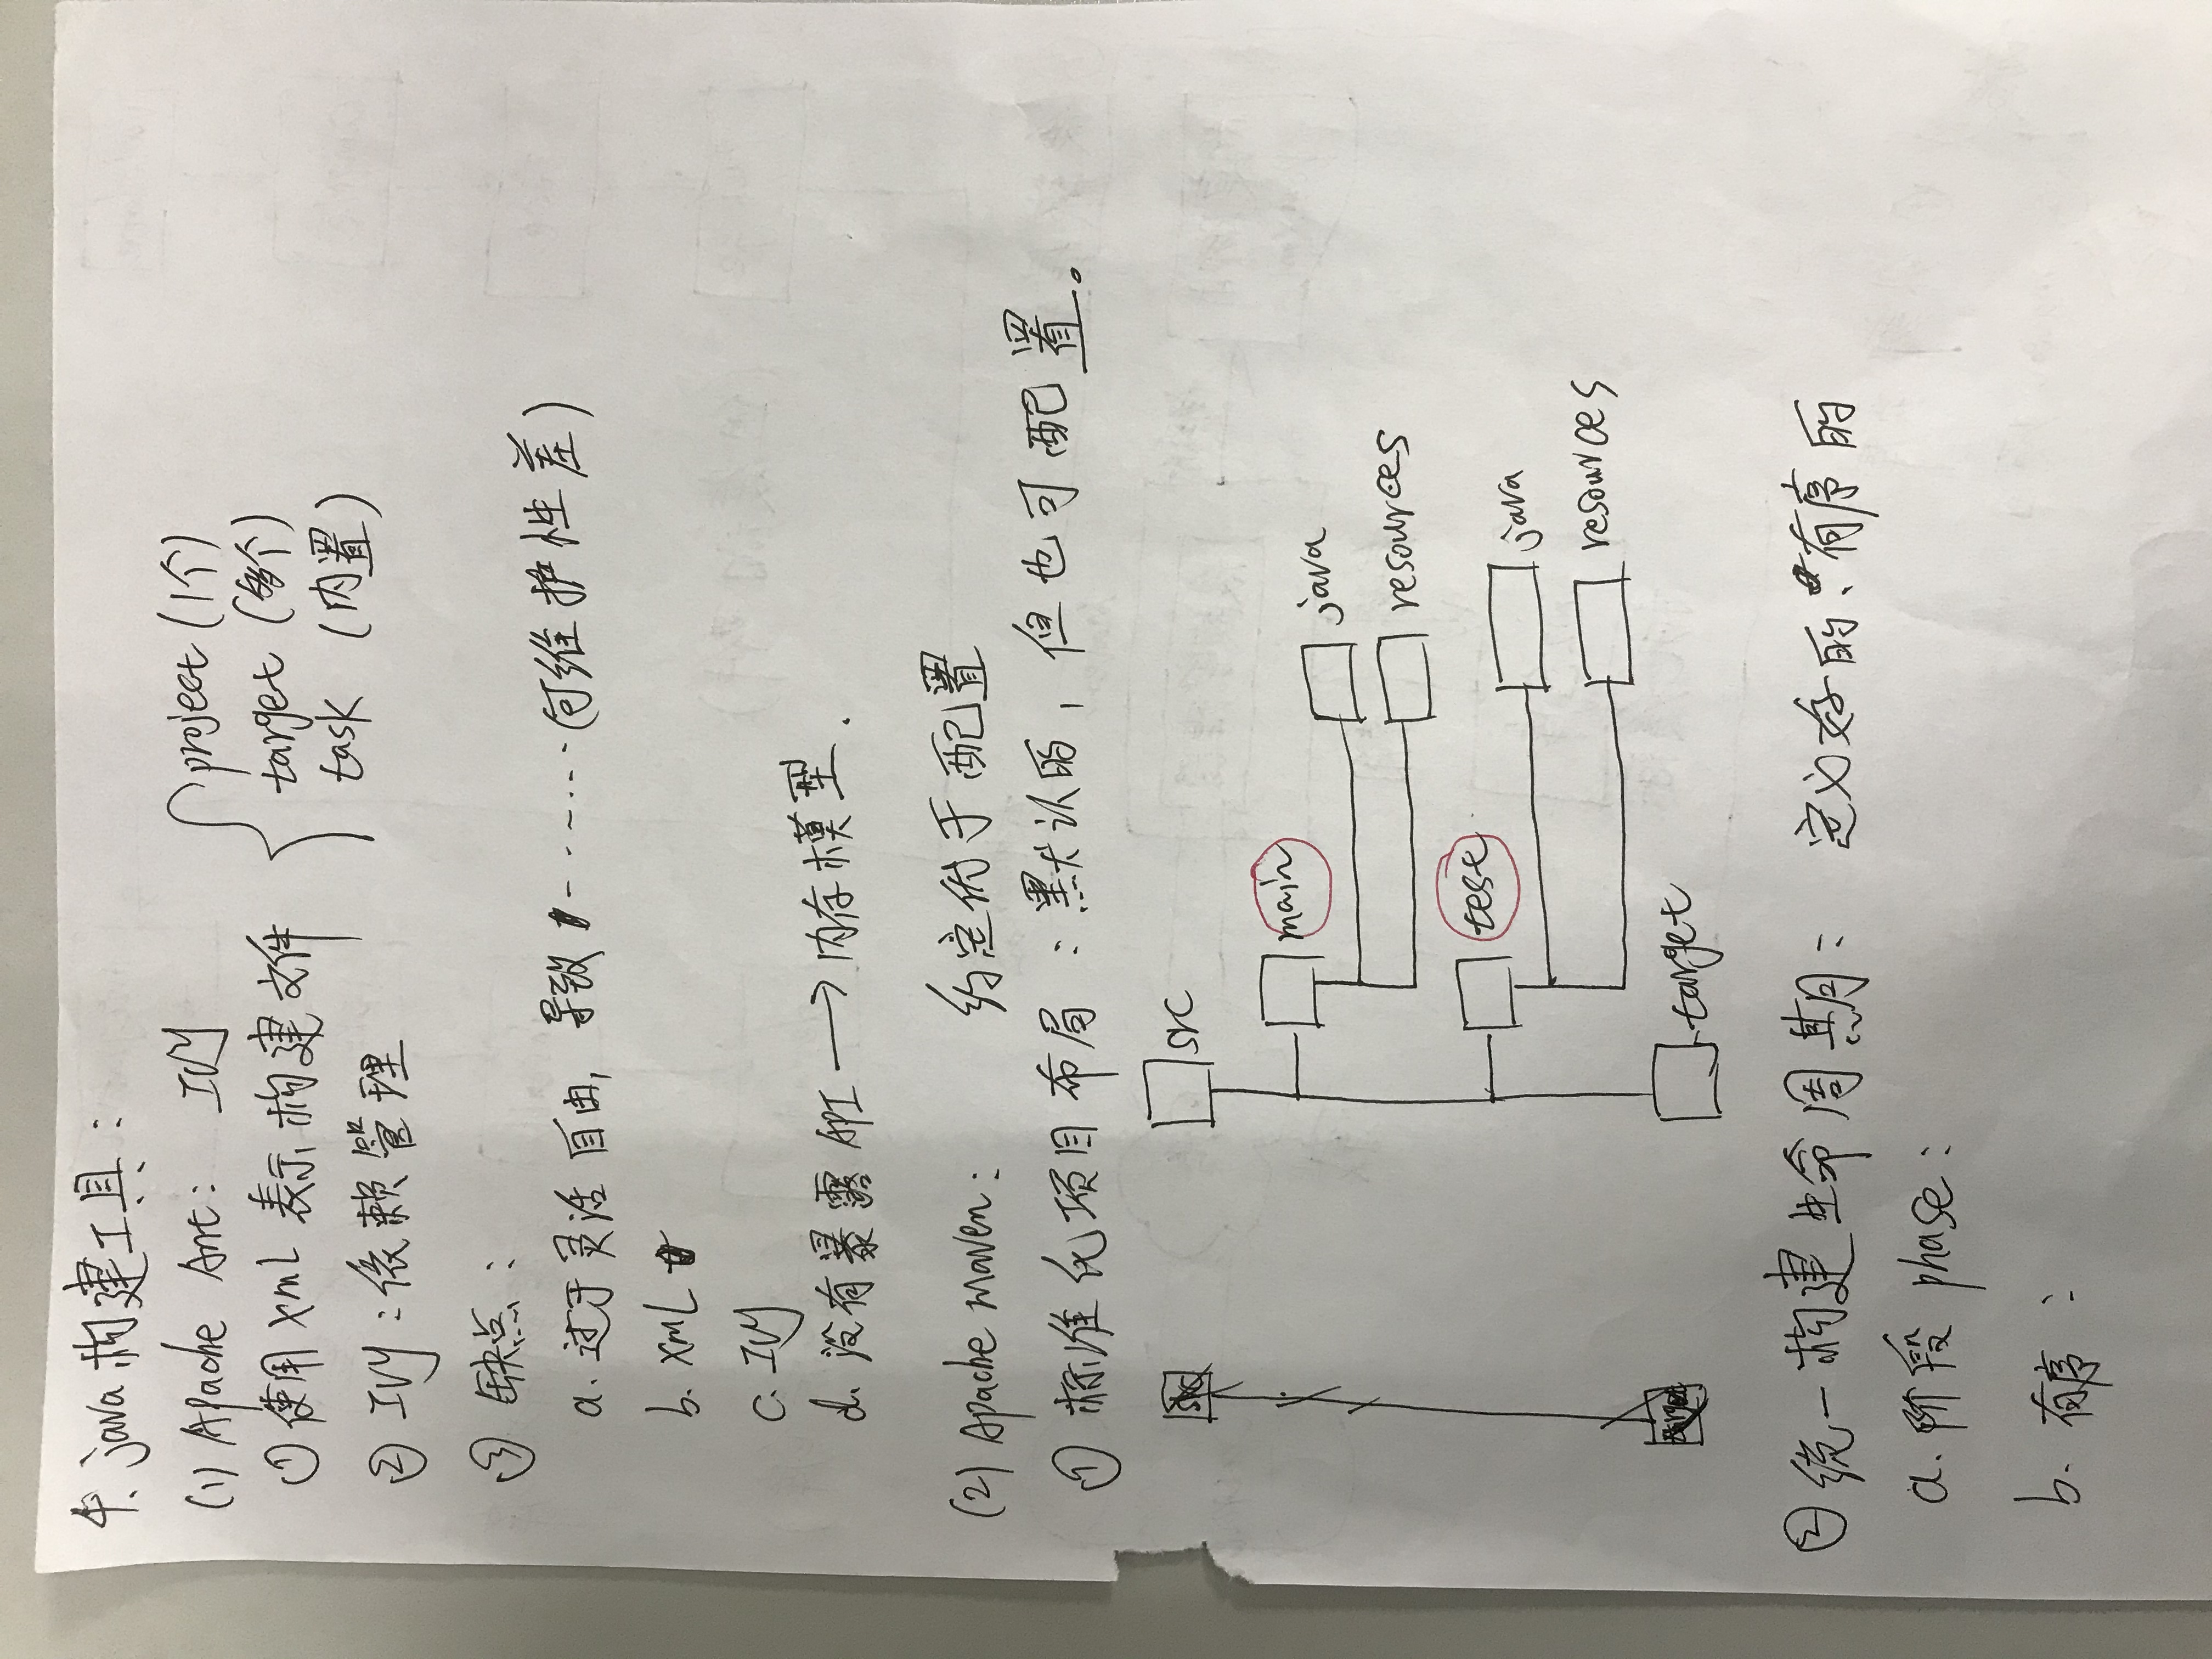 4. java构建工具：
(1) Apache Ant: IVY
project (1个)
target (多个)
task (内置)
① 使用xml表示构建文件
② IVY：依赖管理
③ 缺点：
a. 过于灵活自由, 导致 ······ (可维护性差)
b. xml
c. IVY
d. 没有暴露API → 内存模型.
(2) Apache maven: 约定优于配置
① 标准化项目布局：默认的, 但也可配置。
src
src
main
java
resources
test
java
resources
target
target
② 统一构建生命周期：定义好的、有序的
a. 阶段 phase：
b. 有序：